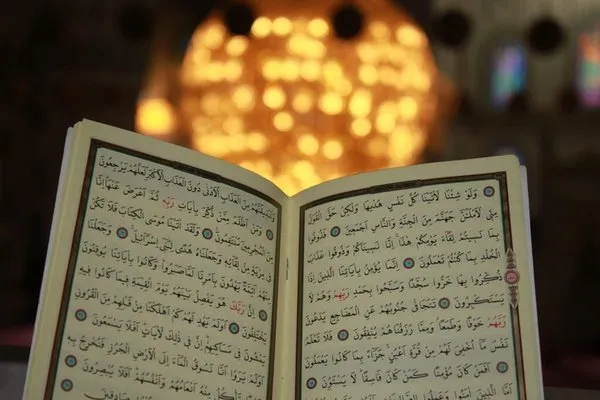 وَلَوْ شِئْنَا لَاٰتَيْنَا كُلَّ نَفْسٍ هُدٰيهَا وَلٰكِنْ حَقَّ الْقَوْلُ
مِنِّي لَاَمْلَـَٔنَّ جَهَنَّمَ مِنَ الْجِنَّةِ وَالنَّاسِ اَجْمَعِينَ فَذُوقُوا
بِمَا نَسِيتُمْ لِقَٓاءَ يَوْمِكُمْ هٰذَا اِنَّا نَسِينَاكُمْ وَذُوقُوا عَذَابَ
الْخُلْدِ بِمَا كُنْتُمْ تَعْمَلُونَ اِنَّمَا يُؤْمِنُ بِاٰيَاتِنَا الَّذِينَ اِذَا
ذُكِّرُوا بِهَا خَرُّوا سُجَّدًا وَسَبَّحُوا بِحَمْدِ رَبِّهِمْ وَهُمْ لَا
يَسْتَكْبِرُونَ تَتَجَافٰى جُنُوبُهُمْ عَنِ الْمَضَاجِعِ يَدْعُونَ
رَبَّهُمْ خَوْفًا وَطَمَعًا وَمِمَّا رَزَقْنَاهُمْ يُنْفِقُونَ فَلَا تَعْلَمُ
نَفْسٌ مَٓا اُخْفِيَ لَهُمْ مِنْ قُرَّةِ اَعْيُنٍ جَزَٓاءً بِمَا كَانُوا يَعْمَلُونَ
اَفَمَنْ كَانَ مُؤْمِنًا كَمَنْ كَانَ فَاسِقًا لَا يَسْتَوُنَ
اَمَّا الَّذِينَ اٰمَنُوا وَعَمِلُوا
مِنَ الْعَذَابِ الْاَدْنٰى دُونَ الْعَذَابِ الْاَكْبَرِ لَعَلَّهُمْ يَرْجِعُونَ
وَمَنْ اَظْلَمُ مِمَّنْ ذُكِّرَ بِاٰيَاتِ رَبِّهِ ثُمَّ اَعْرَضَ عَنْهَا اِنَّا
مِنَ الْمُجْرِمِينَ مُنْتَقِمُونَ وَلَقَدْ اٰتَيْنَا مُوسَى الْكِتَابَ فَلَا تَكُنْ
فِي مِرْيَةٍ مِنْ لِقَٓائِهِ وَجَعَلْنَاهُ هُدًى لِبَنِٓي اِسْرَٓائِيلَ وَجَعَلْنَا
مِنْهُمْ اَئِمَّةً يَهْدُونَ بِاَمْرِنَا لَمَّا صَبَرُوا وَكَانُوا بِاٰيَاتِنَا يُوقِنُونَ
اِنَّ رَبَّكَ هُوَ يَفْصِلُ بَيْنَهُمْ يَوْمَ الْقِيٰمَةِ فِيمَا كَانُوا فِيهِ
يَخْتَلِفُونَ اَوَلَمْ يَهْدِ لَهُمْ كَمْ اَهْلَكْنَا مِنْ قَبْلِهِمْ مِنَ الْقُرُونِ
يَمْشُونَ فِي مَسَاكِنِهِمْ اِنَّ فِي ذٰلِكَ لَاٰيَاتٍ اَفَلَا يَسْمَعُونَ
اَوَلَمْ يَرَوْا اَنَّا نَسُوقُ الْمَٓاءَ اِلَى الْاَرْضِ الْجُرُزِ فَنُخْرِجُ
بِهِ زَرْعًا تَأْكُلُ مِنْهُ اَنْعَامُهُمْ وَاَنْفُسُهُمْ اَفَلَا يُبْصِرُونَ
صَادِقِينَ